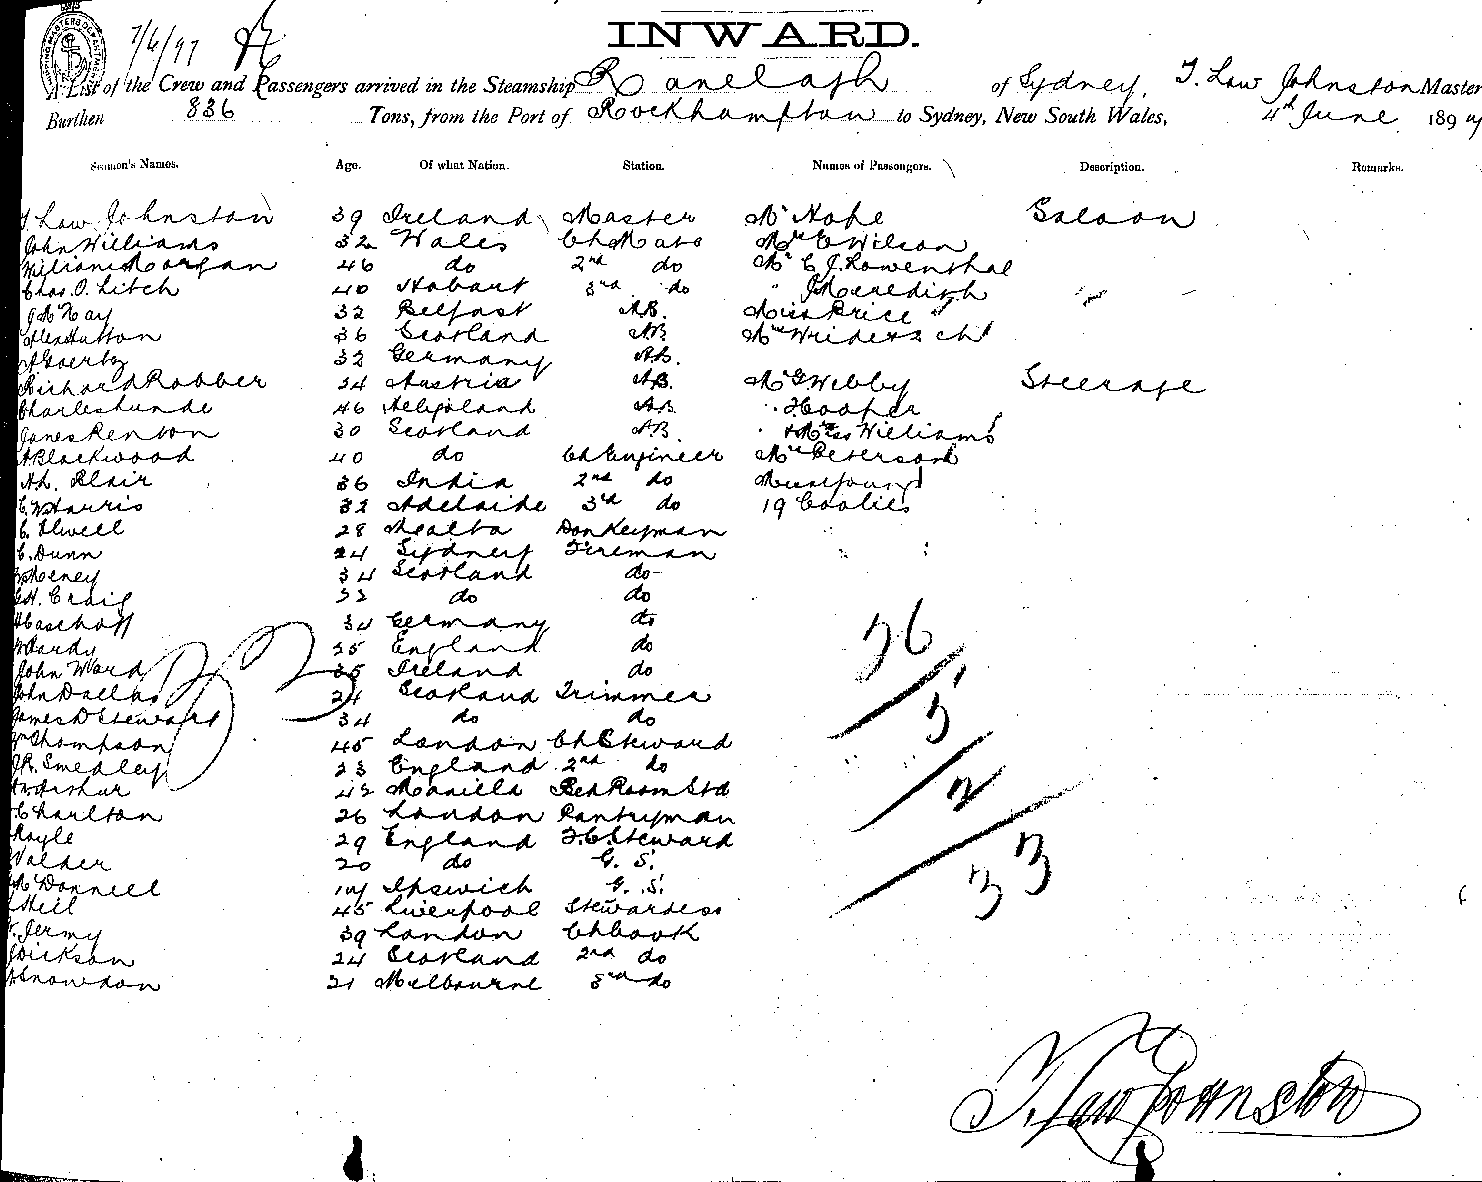 7/6/97
INWARD.
A List of the Crew and Passengers arrived in the Steamship Ranelagh of Sydney, T. Law Johnston Master
Burthen 836 Tons, from the Port of Rockhampton to Sydney, New South Wales, 4th June 1897
Seamen's Names. Age. Of what Nation. Station. Names of Passengers. Description. Remarks.
T. Law Johnston 39 Ireland Master Mr Hope Saloon
John Williams 32 Wales Ch Mate Mr E Wilson
William Morgan 46 do 2nd do Mr C J. Lowenthal
Chas. O. Litch 40 Hobart 3rd do " J Meredith
J McKay 32 Belfast A.B. Miss Price
Alex Hutton 36 Scotland A.B.
32 Germany A.B.
Richard Robber 24 Austria A.B. Mr G Webby Steerage
Charles Lunde 46 Heligoland A.B. " Hooper
James Renton 30 Scotland A.B. " & Miss Williams
A Blackwood 40 do Ch Engineer Peterson
A.L. Blair 36 India 2nd do
C. W Harris 32 Adelaide 3rd do 19 Coolies
C. Elwell 28 Malta Donkeyman
C. Dunn 24 Sydney Fireman
34 Scotland do
G.H. Craig 32 do do
34 Germany do
Hardy 25 England do
John Ward 35 Ireland do
John Dallas 24 Scotland Trimmer
James D Steward 34 do do
Wm Thompson 45 London Ch Steward
J.R. Smedley 23 England 2nd do
Arthur 42 Manilla Bed Room Std
C Charlton 26 London Pantryman
Royle 29 England F.C. Steward
Walder 20 do G. S.
McDonnell 17 Ipswich G. S.
Hill 45 Liverpool Stewardess
Jermy 39 London Ch Cook
Dickson 24 Scotland 2nd do
Snowdon 21 Melbourne 3rd do
33
26
5
2
33
T. Law Johnston